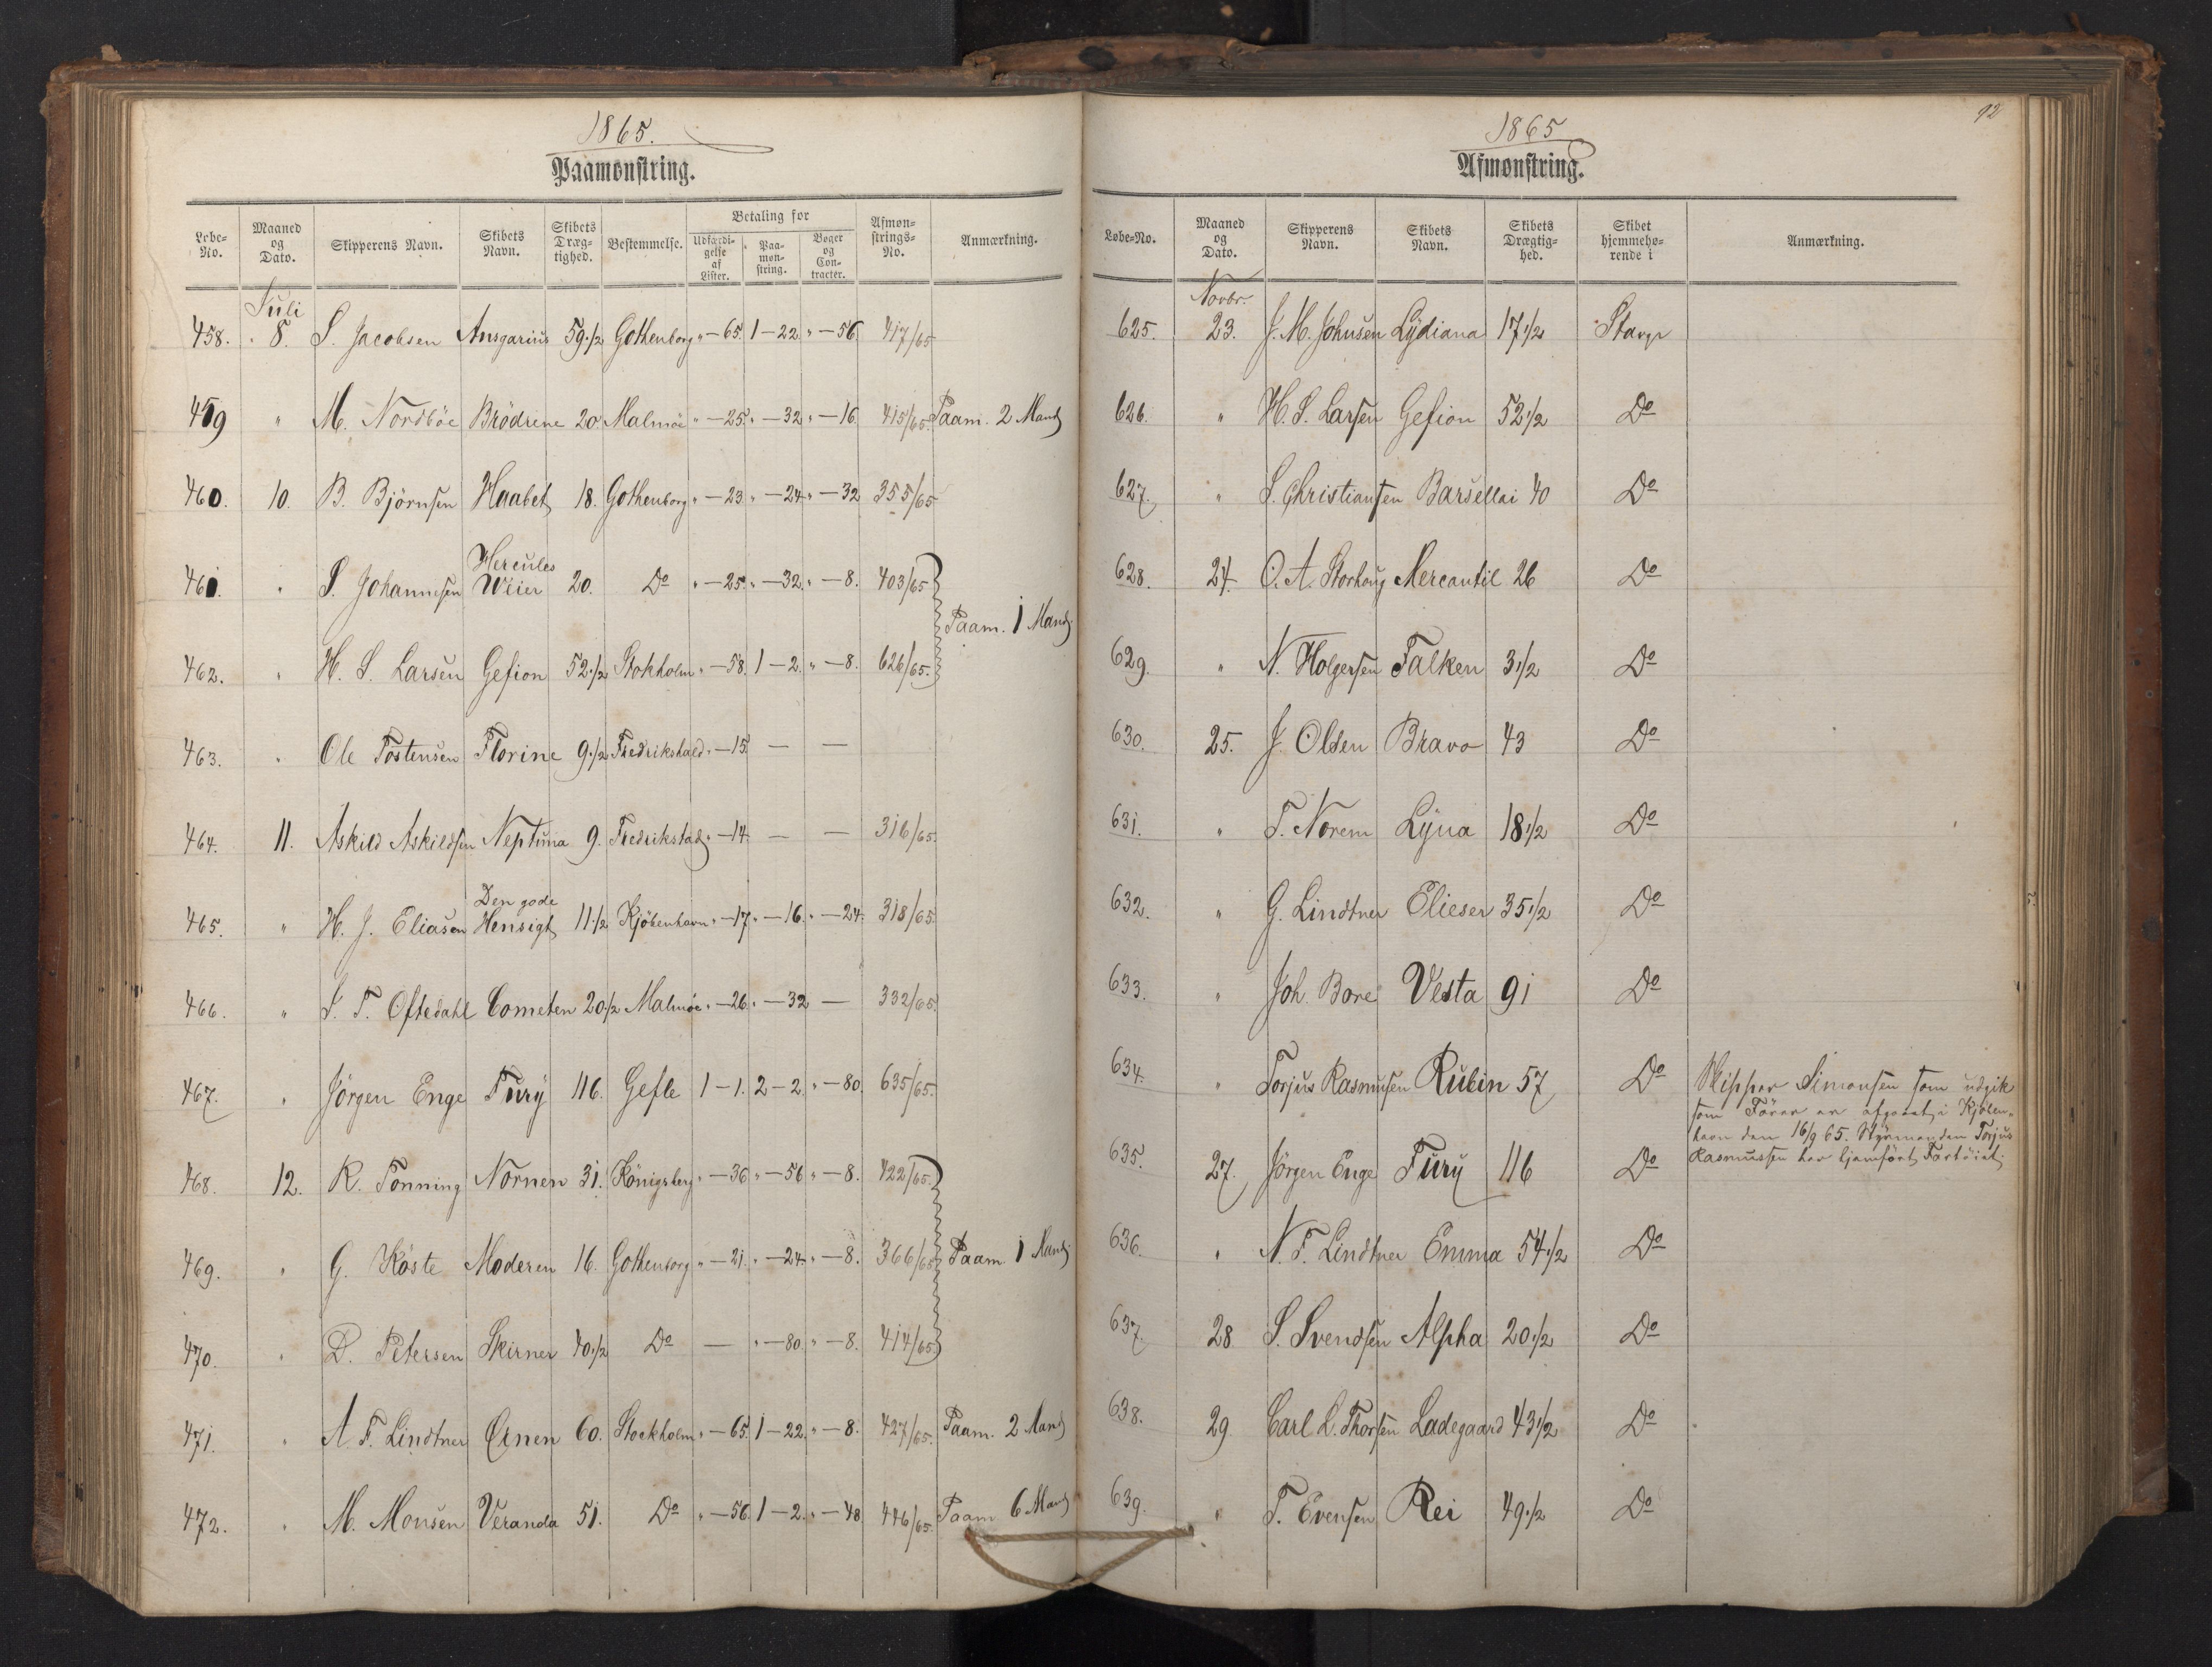 1865.
Paamønstring.
Løbe-No. Maaned og Dato. Skipperens Navn. Skibets Navn. Skibets Dræg-tighed. Bestemmelse. Betaling for Udfærdi-gelse af Lister. Paa-møn-string. Bøger og Con-tracter. Afmøn-strings-No. Anmærkning.
Juli
458. " 8. S. Jacobsen Ansgarius 59 1/2 Gothenborg " — 65. 1 — 22. " — 56 417/65
459 " M. Nordböe Brödrene 20. Malmöe " — 25. " — 32 " — 16. 415/65. Paam. 2 Mand
460. 10. B. Björnsen Haabet 18. Gothenborg " — 23. " — 24 " — 32 355/65
461. " S. Johannesen Hercules Weier 20. Do " — 25. " — 32. " — 8. 403/65
Paam. 1 Mand.
462. " H. S. Larsen Gefion 52 1/2 Stokholm " — 58. 1 — 2. " — 8. 626/65.
463. " Ole Tostensen Florine 9 1/2 Fredrikshald " — 15. — —
464. 11. Askild Askildsen Neptuna 9. Fredrikstad " — 14. — — 316/65.
465. " H. J. Eliasen Den gode Hensigt 11 1/2 Kjöbenhavn " — 17. " — 16. " — 24. 318/65
466. " J. T. Oftedahl Cometen 20 1/2 Malmöe " — 26. " — 32 — 332/65.
467. " Jörgen Enge Fury 116. Gefle 1 — 1. 2 — 2. " — 80. 635/65.
468. 12. R. Tonning Nornen 31. Königsberg " — 36 " — 56 " — 8. 422/65.
469. " G. Köste Moderen 16. Gothenborg " — 21. " — 24. " — 8. 366/65 Paam. 1 Mand.
470. " D. Petersen Skirner 40 1/2 Do — " — 80. " — 8. 414/65
471. " A. F. Lindtner Ørnen 60. Stockholm " — 65. 1 — 22. " — 8. 427/65. Paam. 2 Mand
472. " M. Monsen Veranda 51. Do " — 56. 1 — 2. " — 48 446/65. Paam 6 Mand
92
1865
Afmønstring.
Løbe-No. Maaned og Dato. Skipperens Navn. Skibets Navn. Skibets Drægtig-hed. Skibet hjemmehø-rende i Anmærkning.
Novbr.
625. 23. J. M. Johnsen Lydiana 17 1/2 Stavgr
626. " H. S. Larsen Gefion 52 1/2 Do
627. " S. Christiansen Barsellai 40 Do
628. 24. O. A. Storhoug Mercantil 26 Do
629. " N. Holgersen Falken 3 1/2 Do
630. 25. J. Olsen Bravo 43 Do
631. " T. Norem Lyna 18 1/2 Do
632. " G. Lindtner Elieser 35 1/2 Do
633. " Joh. Bore Vesta 91 Do
634. " Torjus Rasmusen Rubin 57 Do Skipper Simonsen som udgik
som Förer er afgaaet i Kjöben-
havn den 16/9 65. Styrmanden Torjus
Rasmussen har hjemfört Fartöiet.
635. 27. Jörgen Enge Fury 116 Do
636. " N. F. Lindtner Emma 54 1/2 Do
637. 28. S. Svendsen Alpha 20 1/2 Do
638. 29. Carl L. Thorsen Ladegaard 43 1/2 Do
639. " T. Evensen Rei 49 1/2 Do